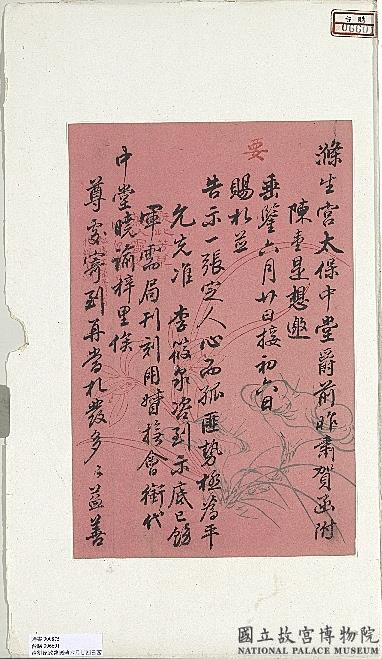 滌生宮太保中堂爵前昨肅賀函附
陳壹是想邀
垂鑒六月廿日接初六日
賜札並
告示一張定人心而孤匪勢極為平
允先准 李筱泉咨到示底已飭
軍需局刊刻用督撫會銜代
中堂曉諭梓里俟
尊處寄到再當札發多多益善
要
台購
國立故宮博物院
NATIONAL PALACE MUSEUM